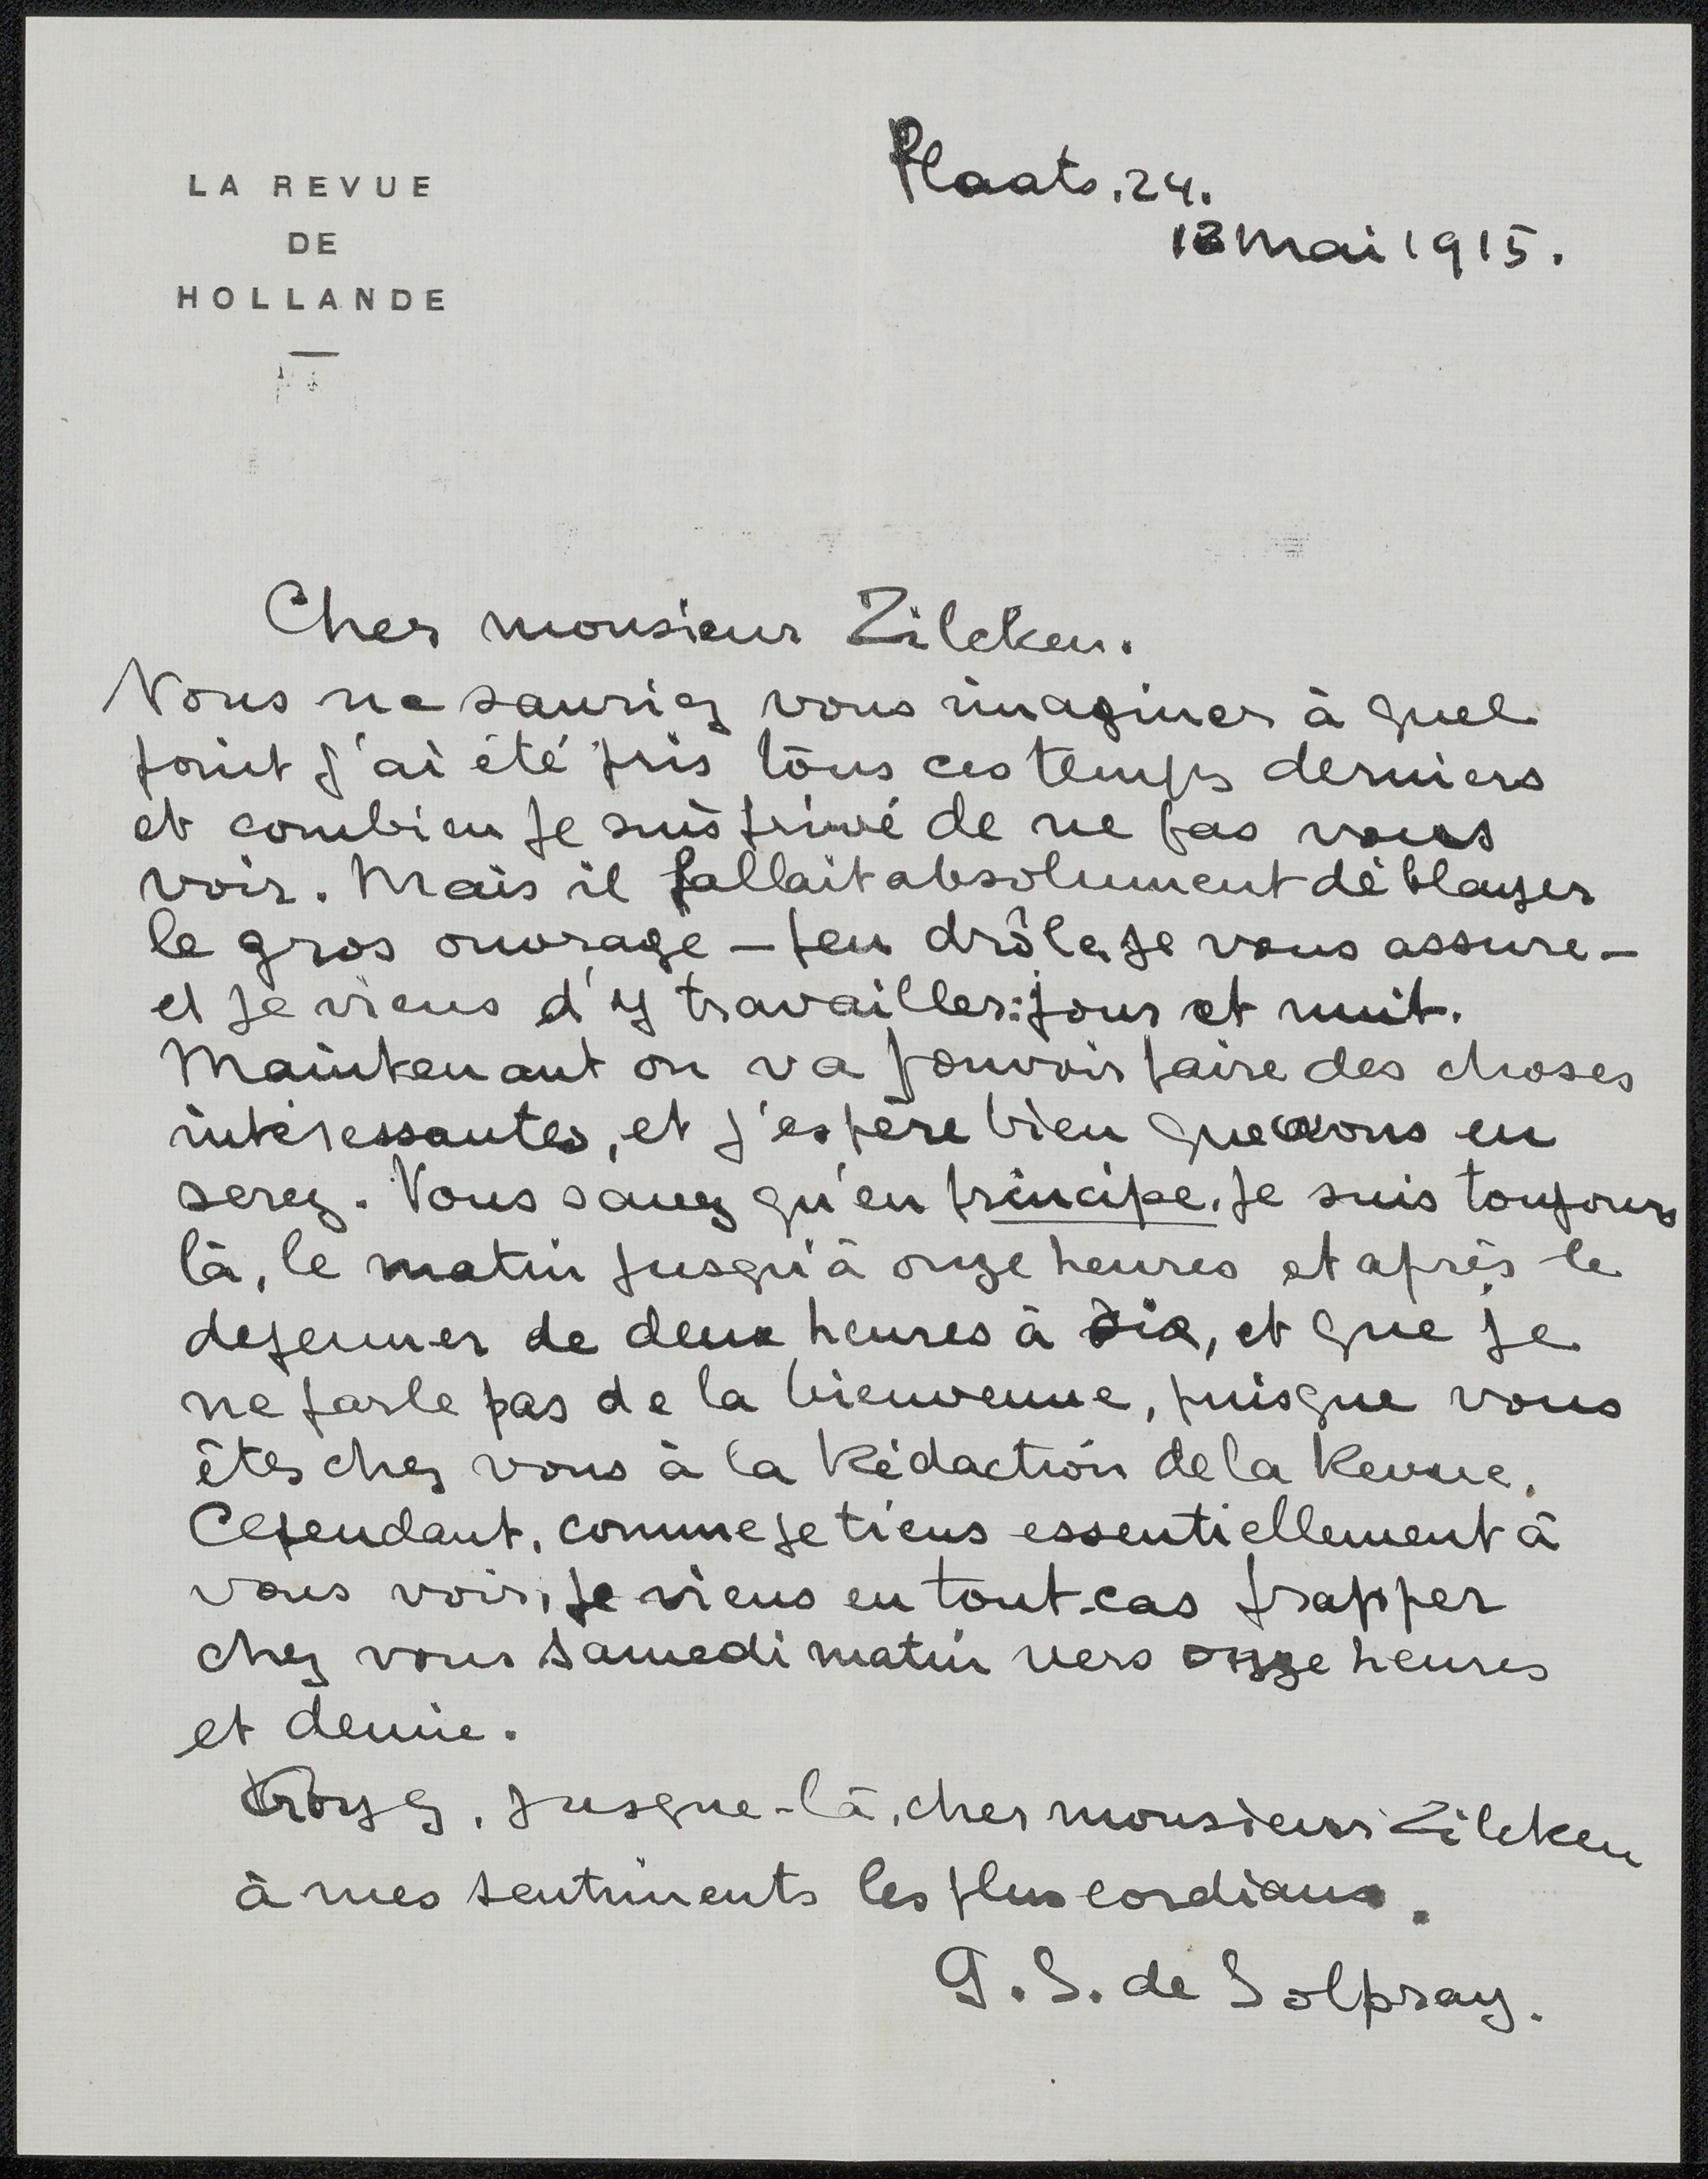 LA REVUE
DE
HOLLANDE
Plaats. 24.
13 mai 1915.
Cher monsieur Zilcken.
Vous ne sauriez vous imaginer à quel
point j'ai été pris tous ces temps derniers
et combien je suis privé de ne pas vous
voir. Mais il fallait absolument déblayer
le gros ouvrage – peu drôle, je vous assure –
et je viens d'y travailler jour et nuit.
Maintenant on va pouvoir faire des choses
intéressantes, et j'espère bien que vous en
serez. Vous savez qu'en principe, je suis toujours
là, le matin jusqu'à onze heures et après le
dejeuner de deux heures à six, et que je
ne parle pas de la bienvenue, puisque vous
êtes chez vous à la Rédaction de la Revue.
Cependant, comme je tiens essentiellement à
vous voir, je viens en tout cas frapper
chez vous samedi matin vers onze heures
et demie.
Croyez, jusque-là, cher monsieur Zilcken
à mes sentiments les plus cordiaux.
G. S. de Solpray.